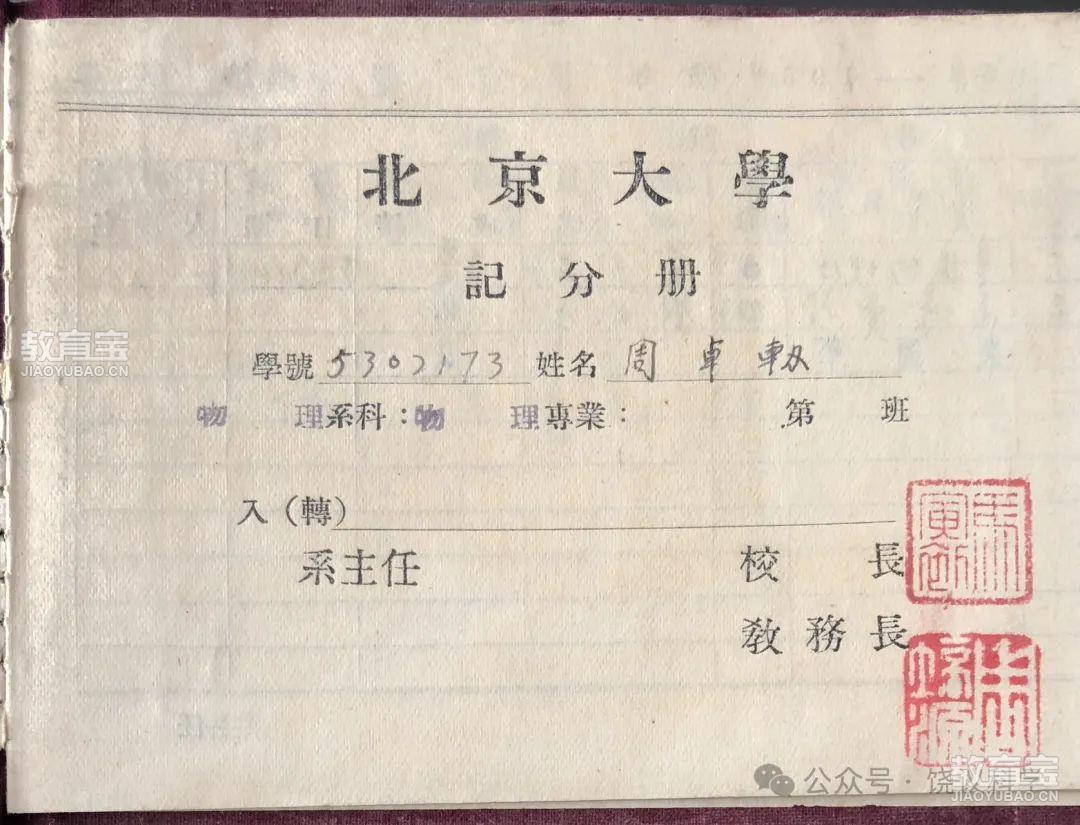 北京大學
記分册
學號 5302173 姓名 周卓
物理系科：物理專業： 第 班
入（轉）
系主任 校長
教務長
馬寅初
教育宝
JIAOYUBAO.CN
公众号·饶议科学
教育宝
JIAOYUBAO.CN